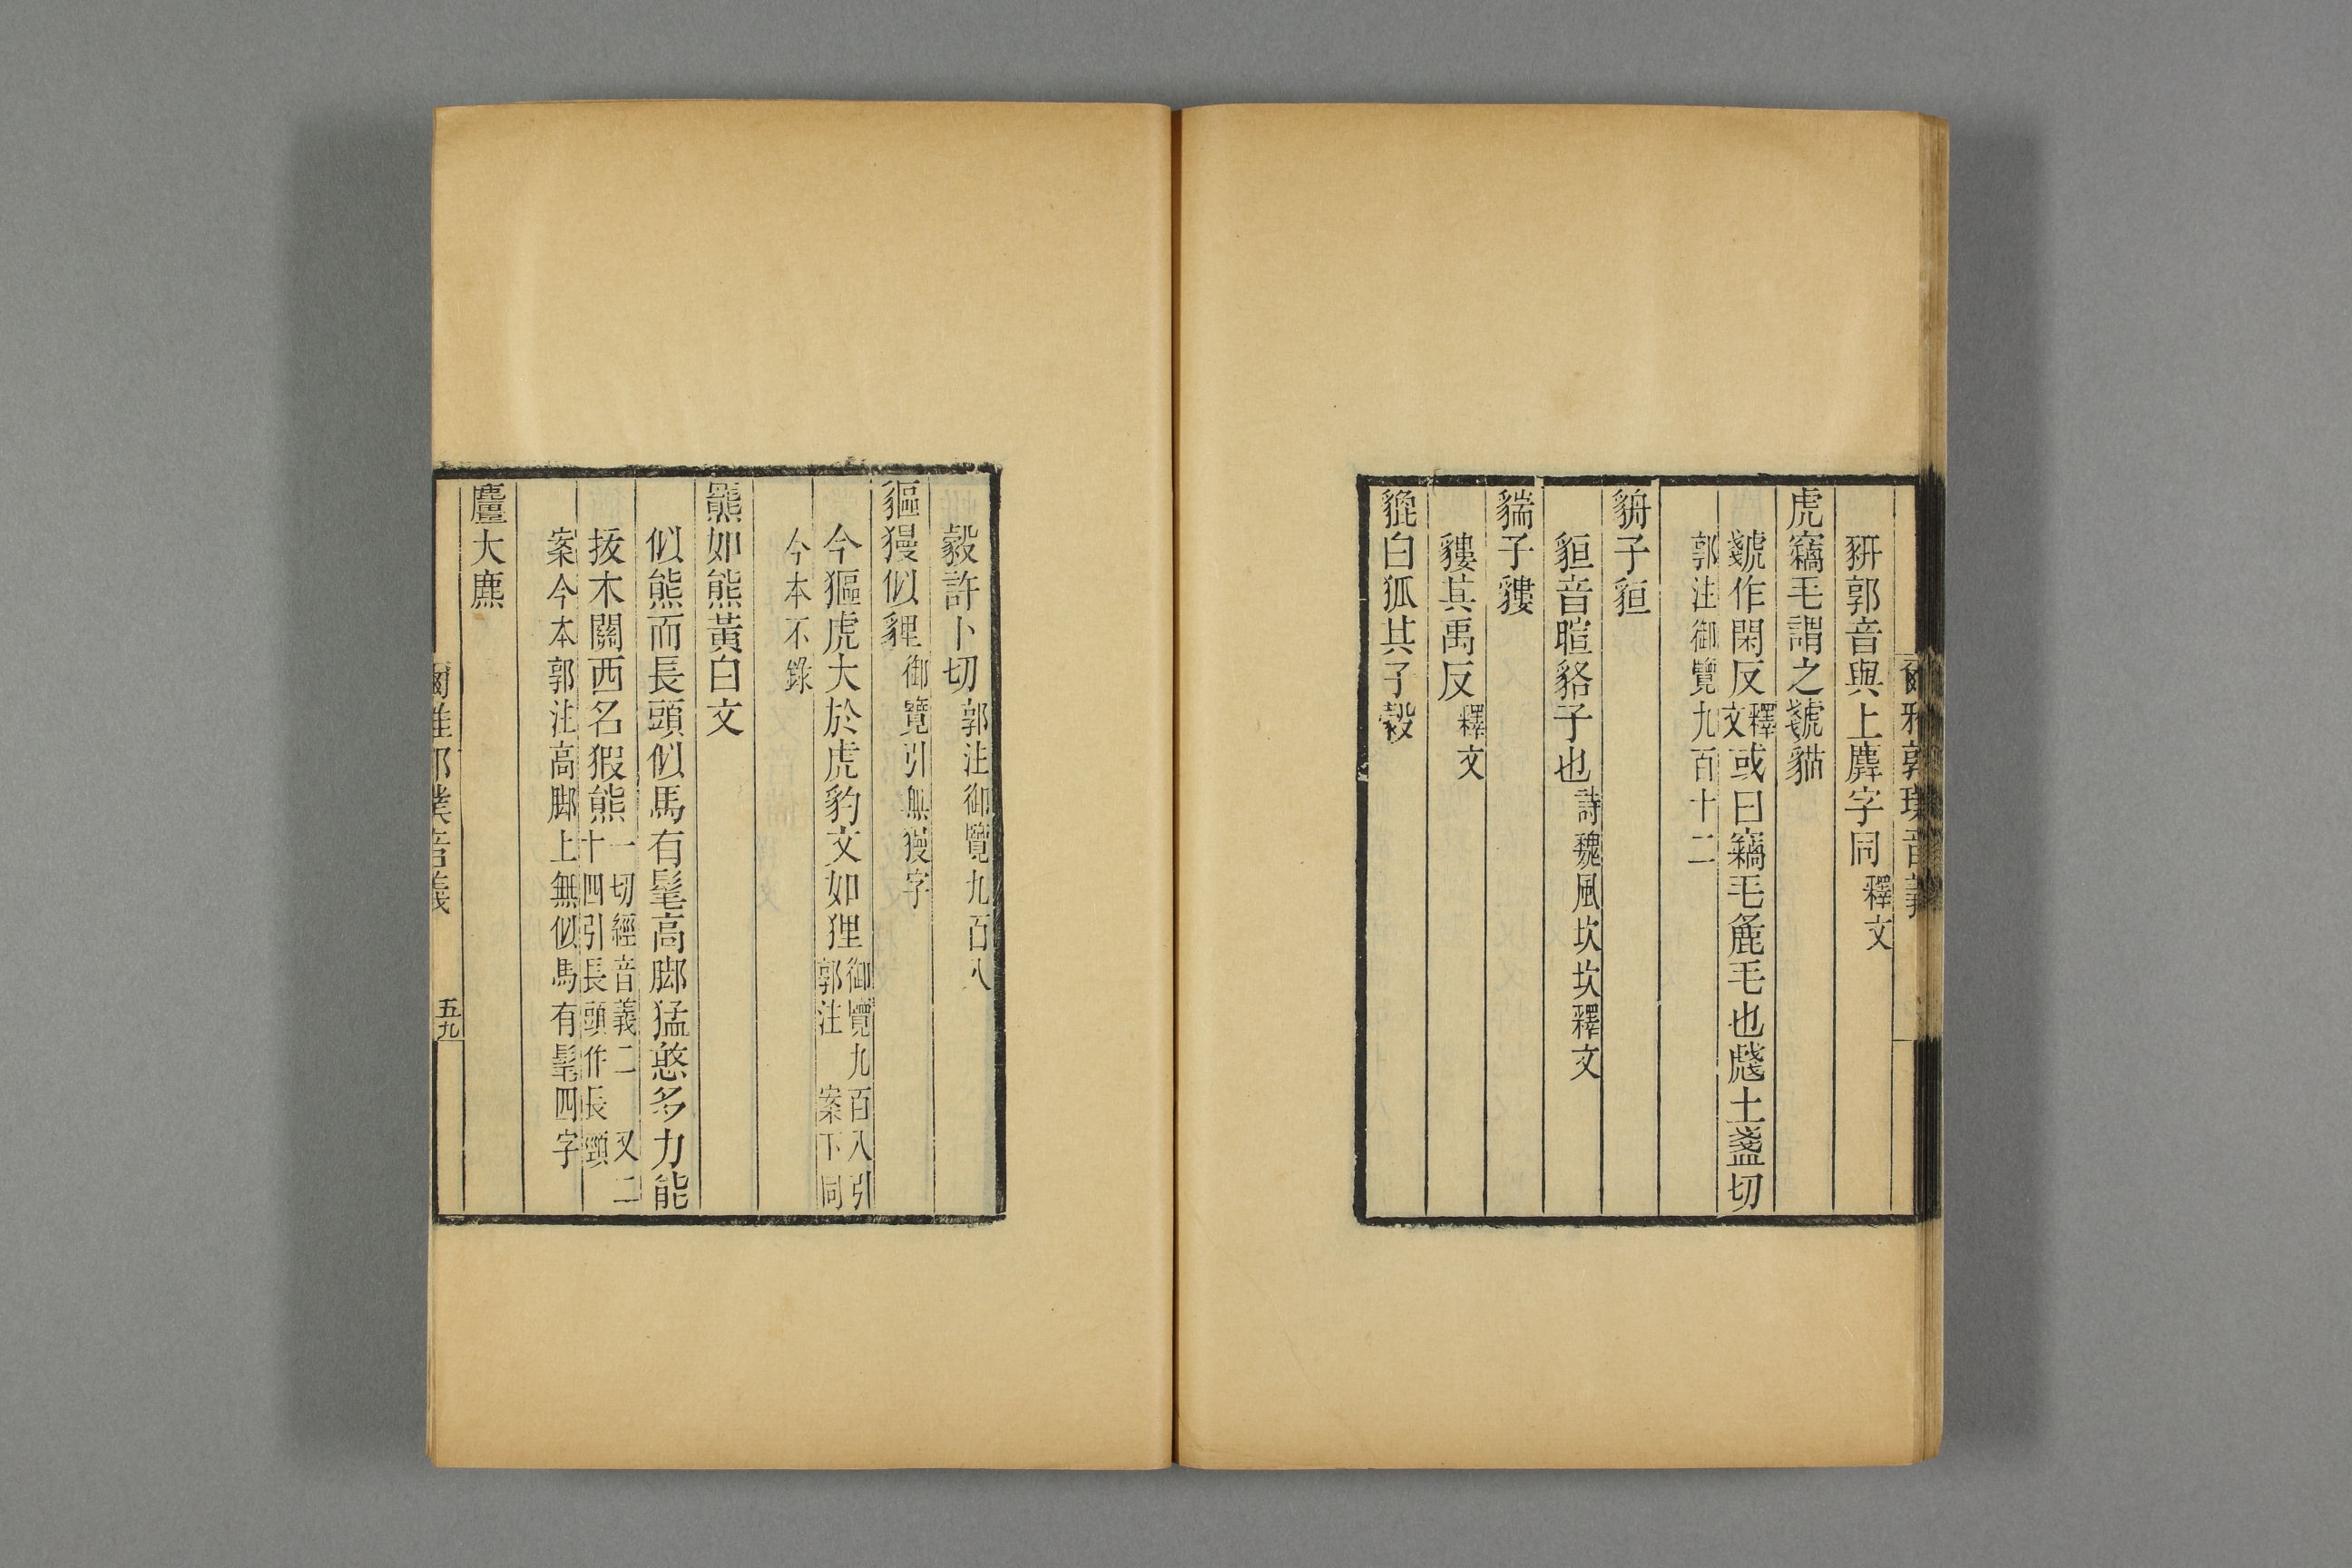 爾雅郭璞音義
豣郭音與上麉字同釋文
虎竊毛謂之虦貓
虦作閑反釋文或曰竊毛麄毛也虥士盞切
郭注御覽九百十二
貈子貆
貆音暄貉子也詩魏風坎坎釋文
貒子貗
貗其禹反釋文
貔白狐其子豰
豰許卜切郭注御覽九百八
貙獌似貍御覽引無獌字
今貙虎大於虎豹文如狸御覽九百八引
郭注 案下同
今本不錄
羆如熊黃白文
似熊而長頭似馬有髦高脚猛憨多力能
拔木關西名猳熊一切經音義二 又二
十四引長頭作長頸
案今本郭注高脚上無似馬有髦四字
麠大麃
爾雅郭璞音義
五九